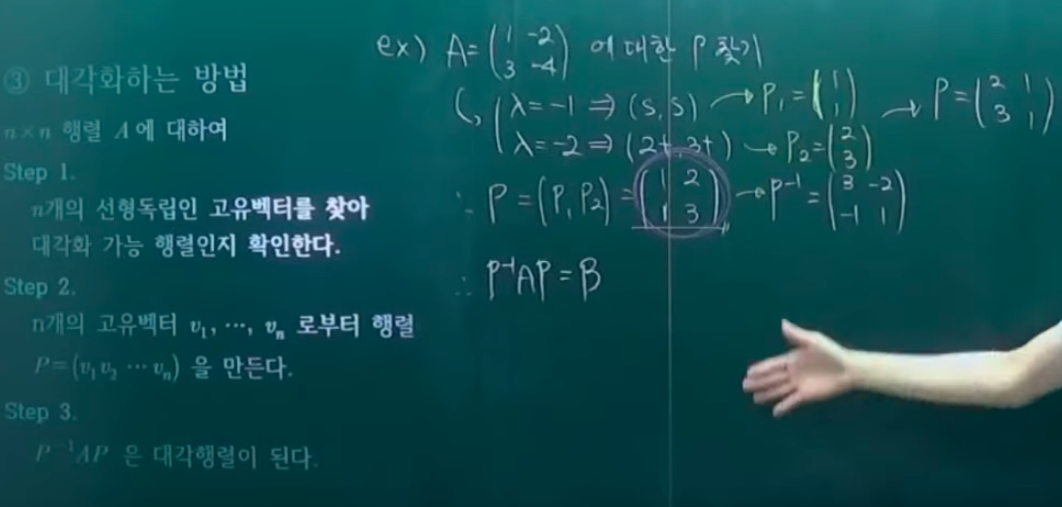 ③ 대각화하는 방법
n×n 행렬 A에 대하여
Step 1.
n개의 선형독립인 고유벡터를 찾아
대각화 가능 행렬인지 확인한다.
Step 2.
n개의 고유벡터 v₁, ⋯, vₙ 로부터 행렬
P=(v₁ v₂ ⋯ vₙ) 을 만든다.
Step 3.
P⁻¹AP 은 대각행렬이 된다.
ex) A=(1 -2; 3 -4) 에 대한 P 찾기
λ=-1 ⇒ (s, s) → P₁=(1; 1) → P=(2 1; 3 1)
λ=-2 ⇒ (2t, 3t) → P₂=(2; 3)
∴ P=(P₁ P₂)=(1 2; 1 3) → P⁻¹=(3 -2; -1 1)
∴ P⁻¹AP=B